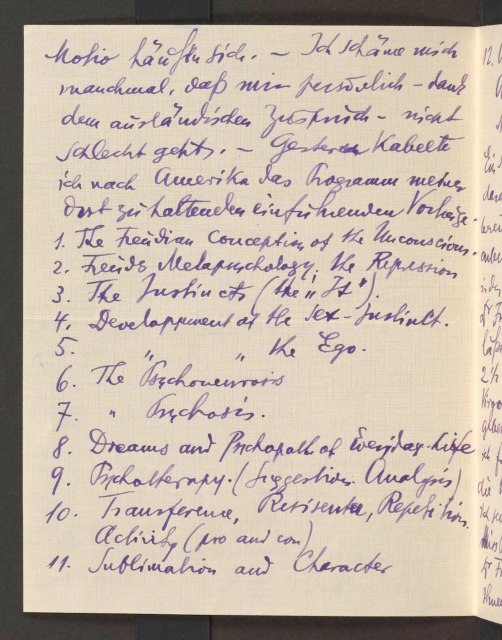 Motio häufen sich. – Ich schäme mich
manchmal, daß mir persönlich – dank
dem ausländischen Zuspruch – nicht
schlecht geht. – Gestern Kabelte
ich nach Amerika das Programm meiner
dort zu haltenden einführenden Vorträge.
1. The Freudian Conception of the Unconscious.
2. Freuds Metapsychology. the Repression
3. The Instincts (the "It").
4. Developpment of the Sex-Instinct.
5. " " the Ego.
6. The Psychoneurosis
7. " Psychosis.
8. Dreams and Psychopath of Everyday-Life
9. Psychotherapy. (Suggestion. Analysis)
10. Transference, Resistence, Repetition.
Activity (pro and con)
11. Sublimation and Character